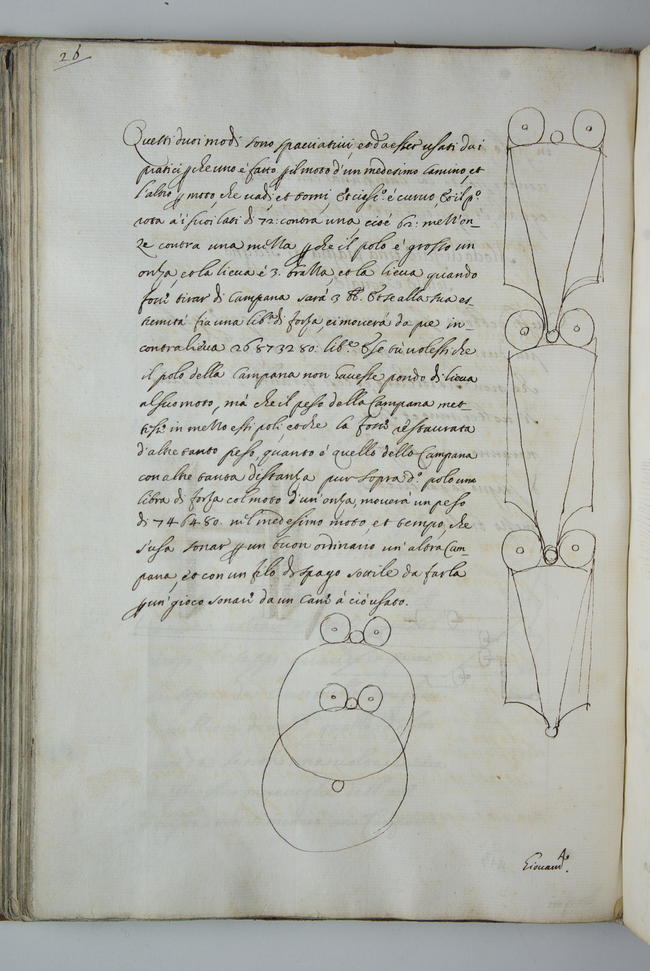 26
Questi duoi modi sono speculativi, et da esser usati da i
pratici che uno è fatto il moto d'un medesimo camino, et
l'altro moto, che vadi, et torni, et è curuo
rota à i suoi lati di 72: contra una, cioè 62: mell'on
ze contra una mella che il polo è grosso un
onza, et la lieua è 3. bratta, et la lieua quando
tirar di Campana sarà 3 et se alla sua es
tremità sia una di forza, ci mouerà da pie in
contra lieua 26873280: Et se tù volessi che
il polo della Campana non hauesse pondo di lieua
al suo moto, mà che il peso della Campana met
in mello essi poli, et che la restaurata
d'altre tanto peso, quanto è quello della Campana
con altre tanta distanza pur sopra polo una
libra di forza col moto d'un'onza, mouerà un peso
di 746480. nel medesimo moto, et tempo, che
s'usa sonar un buon ordinario un'altra Cam
pana, et con un filo di spago sottile da farla
un gioco sonar da un à ciò usato.